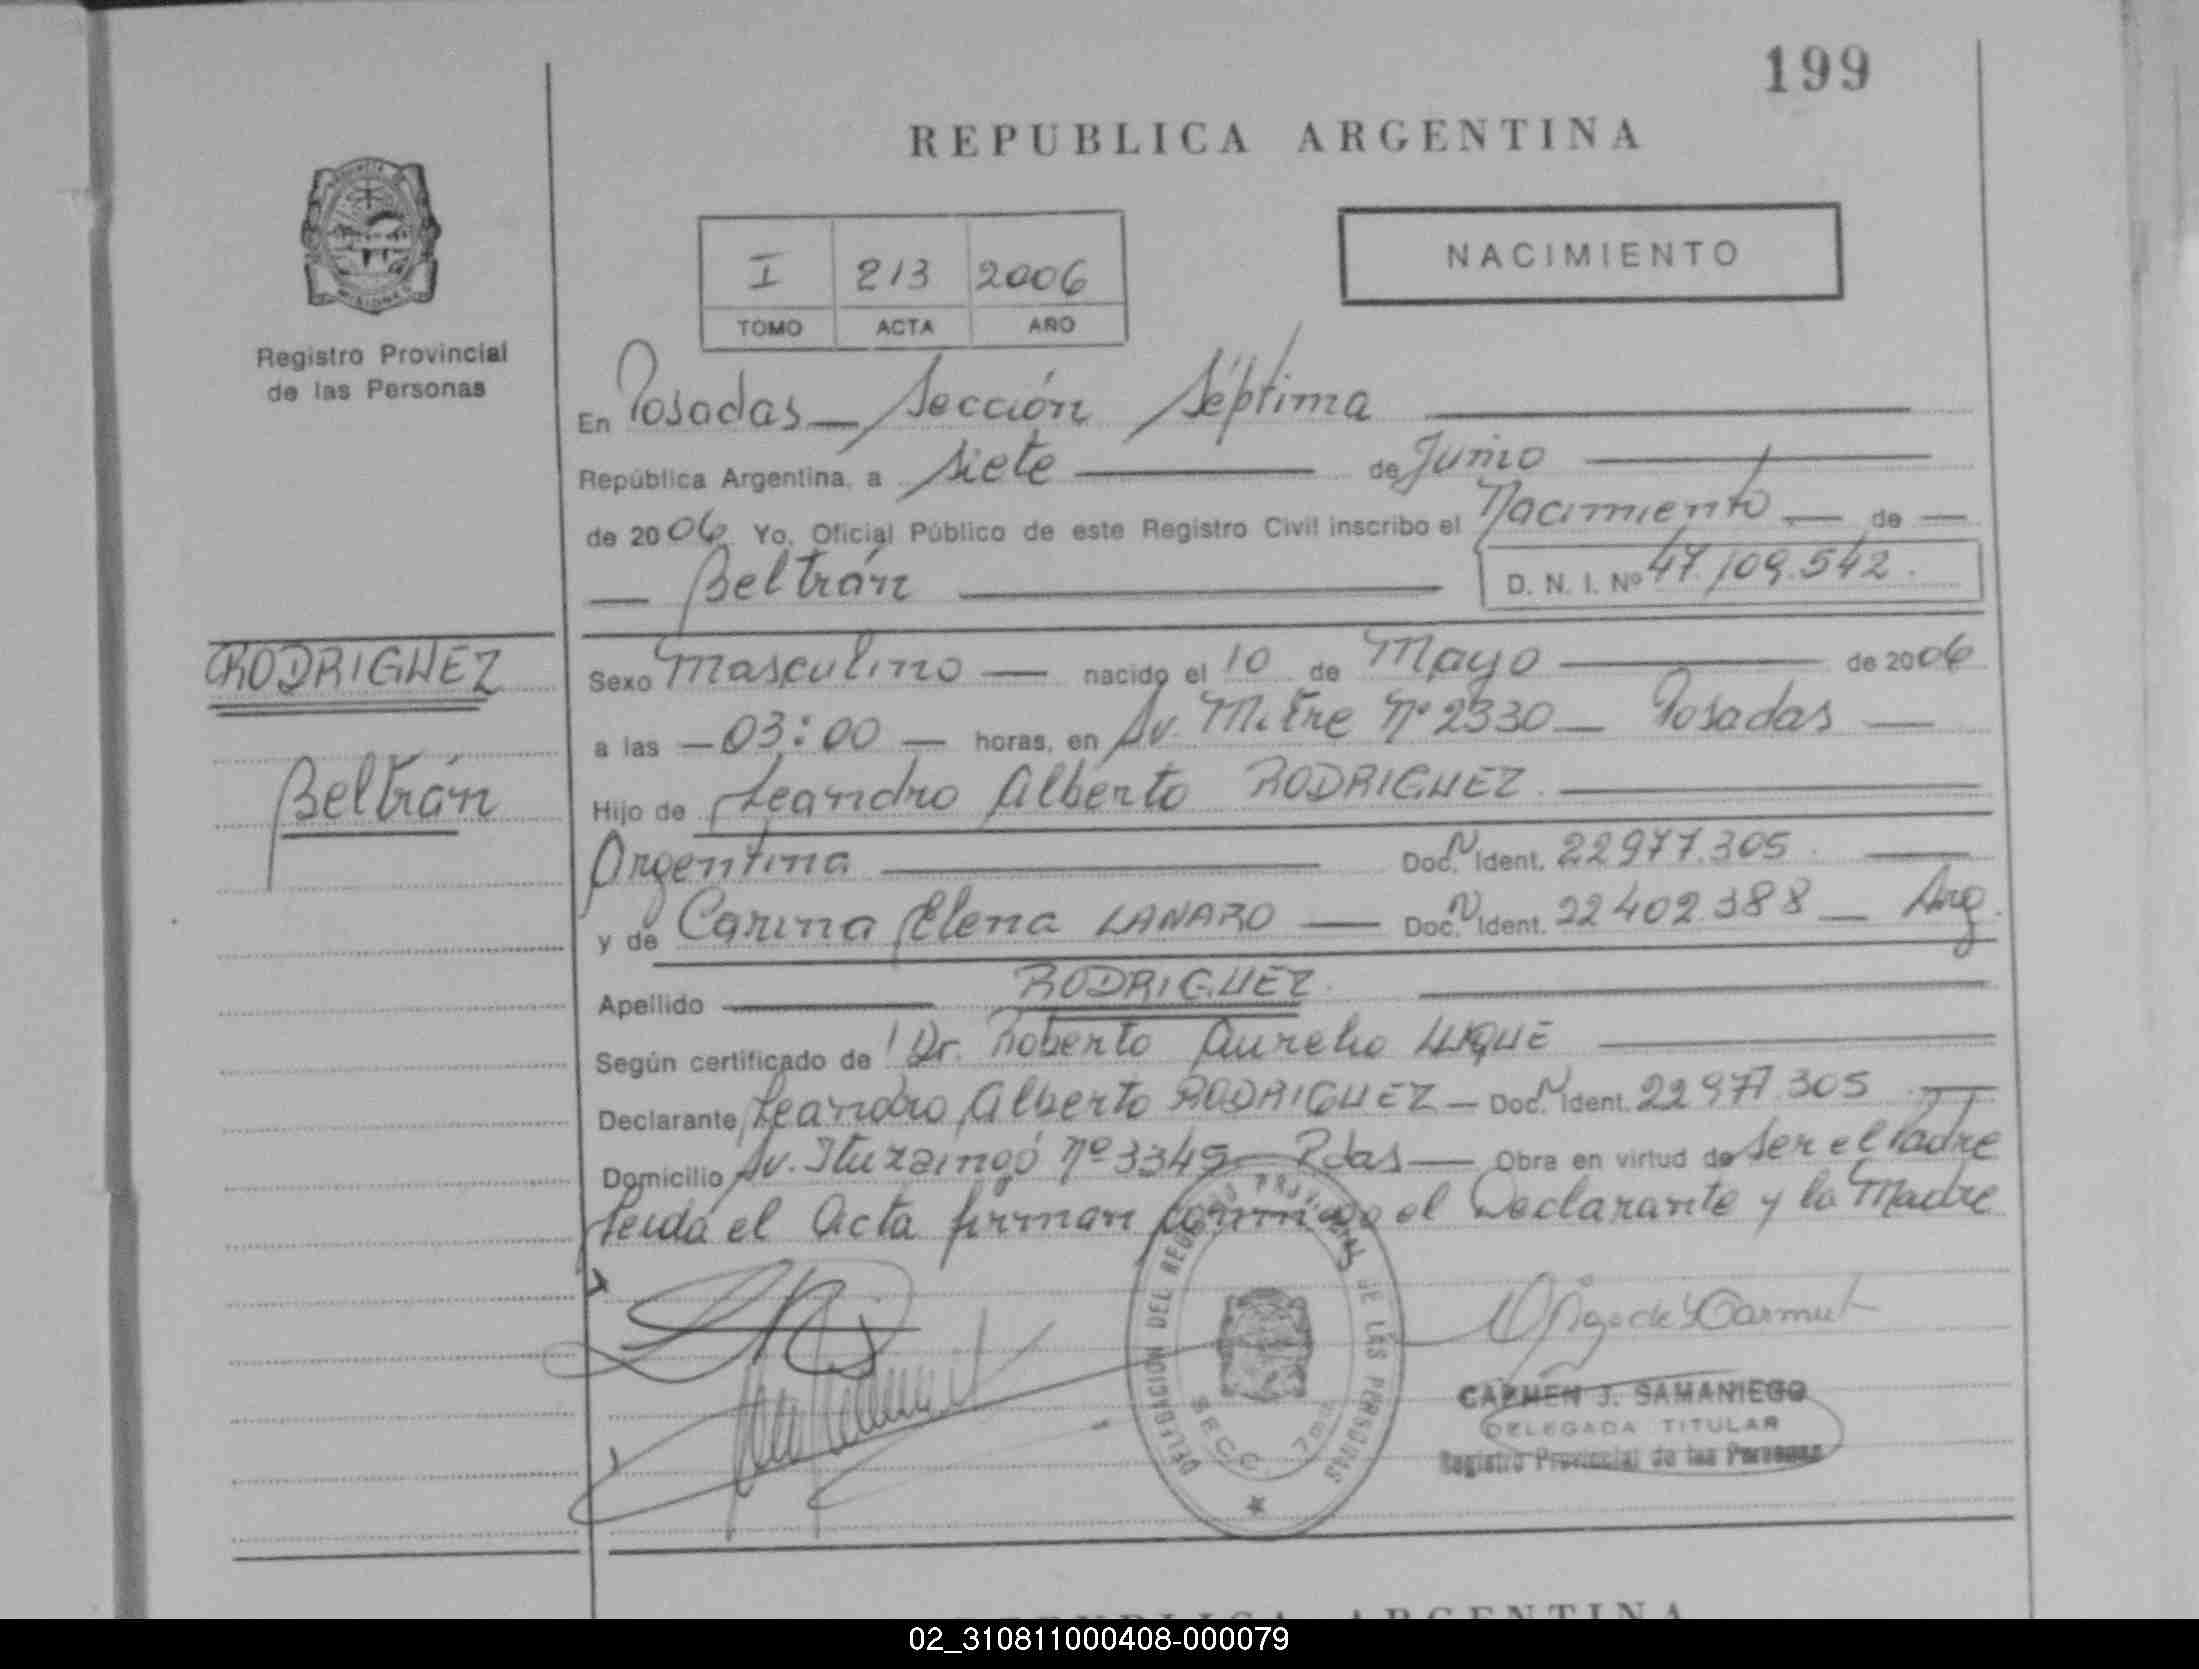 199
REPUBLICA ARGENTINA
NACIMIENTO
I 213 2006
TOMO ACTA AÑO
Registro Provincial
de las Personas
En Posadas — Sección Séptima
República Argentina, a siete de Junio
de 2006 Yo, Oficial Público de este Registro Civil inscribo el Nacimiento — de —
— Beltrán D. N. I. Nº 47.109.542.
RODRIGUEZ
Beltrán
Sexo Masculino — nacido el 10 de Mayo de 2006
a las — 03:00 — horas, en Av. Mitre Nº 2330 — Posadas —
Hijo de Leandro Alberto RODRIGUEZ.
Argentina Doc. N Ident. 22977.305.
y de Carina Elena LANARO — Doc. N Ident. 22402.388 — Arg.
Apellido RODRIGUEZ.
Según certificado de Dr. Roberto Aurelio LUQUE
Declarante Leandro Alberto RODRIGUEZ — Doc. N Ident. 22977.305
Domicilio Av. Ituzaingó Nº 3345 — Pdas — Obra en virtud de ser el Padre
Leida el Acta firman conmigo el Declarante y la Madre
DELEGACION DEL REGISTRO PROVINCIAL DE LAS PERSONAS
SECC. 7ma
CARMEN J. SAMANIEGO
DELEGADA TITULAR
Registro Provincial de las Personas
REPUBLICA ARGENTINA
02_310811000408-000079